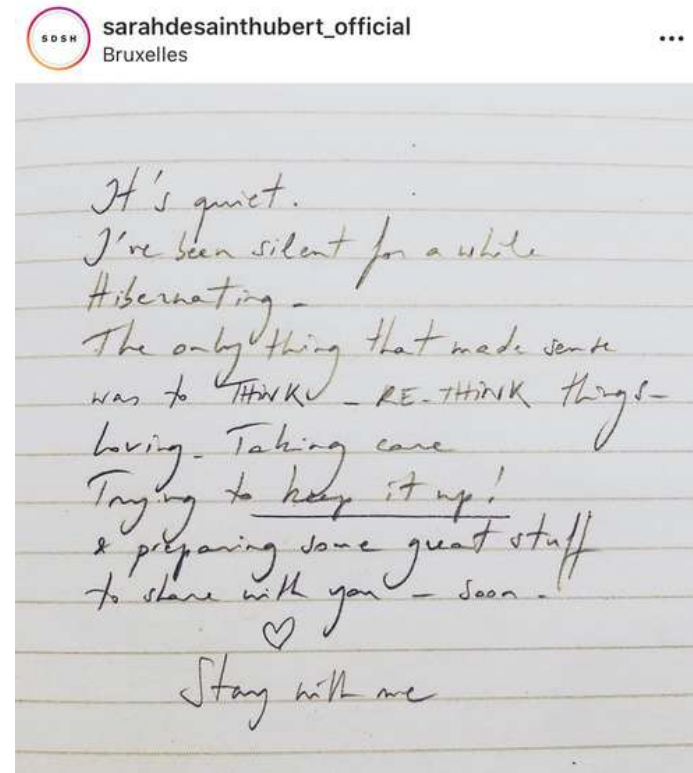 SDSH
sarahdesainthubert_official
Bruxelles
It's quiet.
I've been silent for a while
Hibernating -
The only thing that made sense
was to THINK - RE-THINK things -
Loving - Taking care
Trying to keep it up!
& preparing some great stuff
to share with you - Soon -
♡
Stay with me